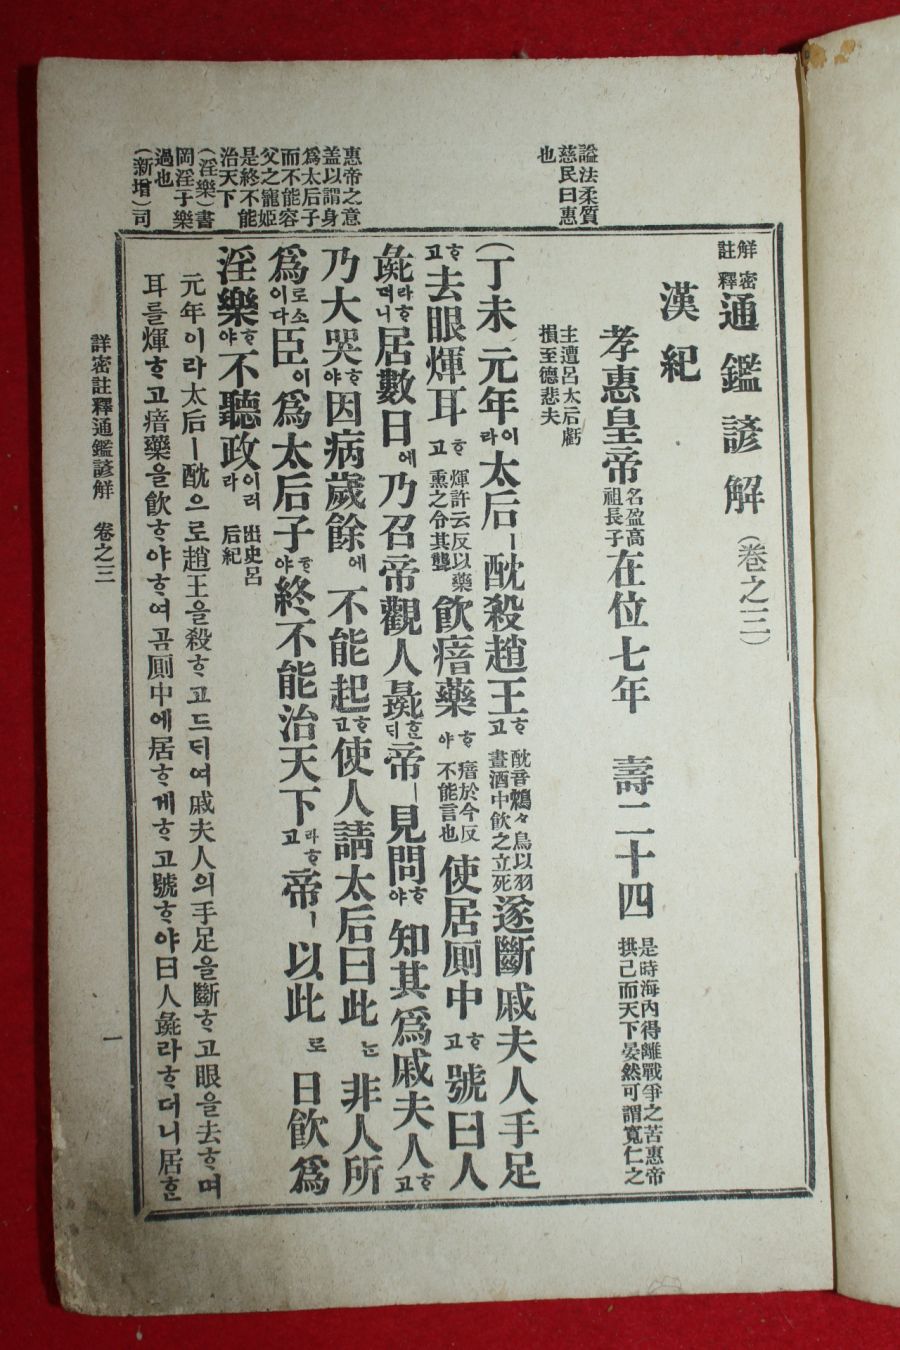 謚法柔質
慈民曰惠
也
惠帝之意
盖以謂身
爲太后子
而不能容
父之寵姬
是終不能
治天下
(淫樂)書
岡淫于樂
過也
(新增)司
詳密註釋通鑑諺解(卷之三)
漢紀
孝惠皇帝名盈高祖長子在位七年 壽二十四是時海內得離戰爭之苦惠帝拱己而天下晏然可謂寬仁之
主遭呂太后虧損至德悲夫
(丁未元年이라太后ㅣ酖殺趙王ᄒᆞ고酖音鴆々鳥以羽畫酒中飮之立死遂斷戚夫人手足
ᄒᆞ고去眼煇耳ᄒᆞ고煇許云反以藥熏之令其聾飮瘖藥ᄒᆞ야瘖於今反不能言也使居厠中ᄒᆞ고號曰人
彘라ᄒᆞ더니居數日에乃召帝觀人彘ᄒᆞᆫ대帝ㅣ見問ᄒᆞ야知其爲戚夫人ᄒᆞ고
乃大哭ᄒᆞ야因病歲餘에不能起ᄒᆞ고使人請太后曰此ᄂᆞᆫ非人所
爲로소이다臣이爲太后子ᄒᆞ야終不能治天下라ᄒᆞ고帝ㅣ以此로日飮爲
淫樂ᄒᆞ야不聽政이러라出史呂后紀
元年이라太后ㅣ酖으로趙王을殺ᄒᆞ고드듸여戚夫人의手足을斷ᄒᆞ고眼을去ᄒᆞ며
耳를煇ᄒᆞ고瘖藥을飮ᄒᆞ야ᄒᆞ여곰厠中에居ᄒᆞ게ᄒᆞ고號ᄒᆞ야曰人彘라ᄒᆞ더니居ᄒᆞᆫ
詳密註釋通鑑諺解 卷之三
一